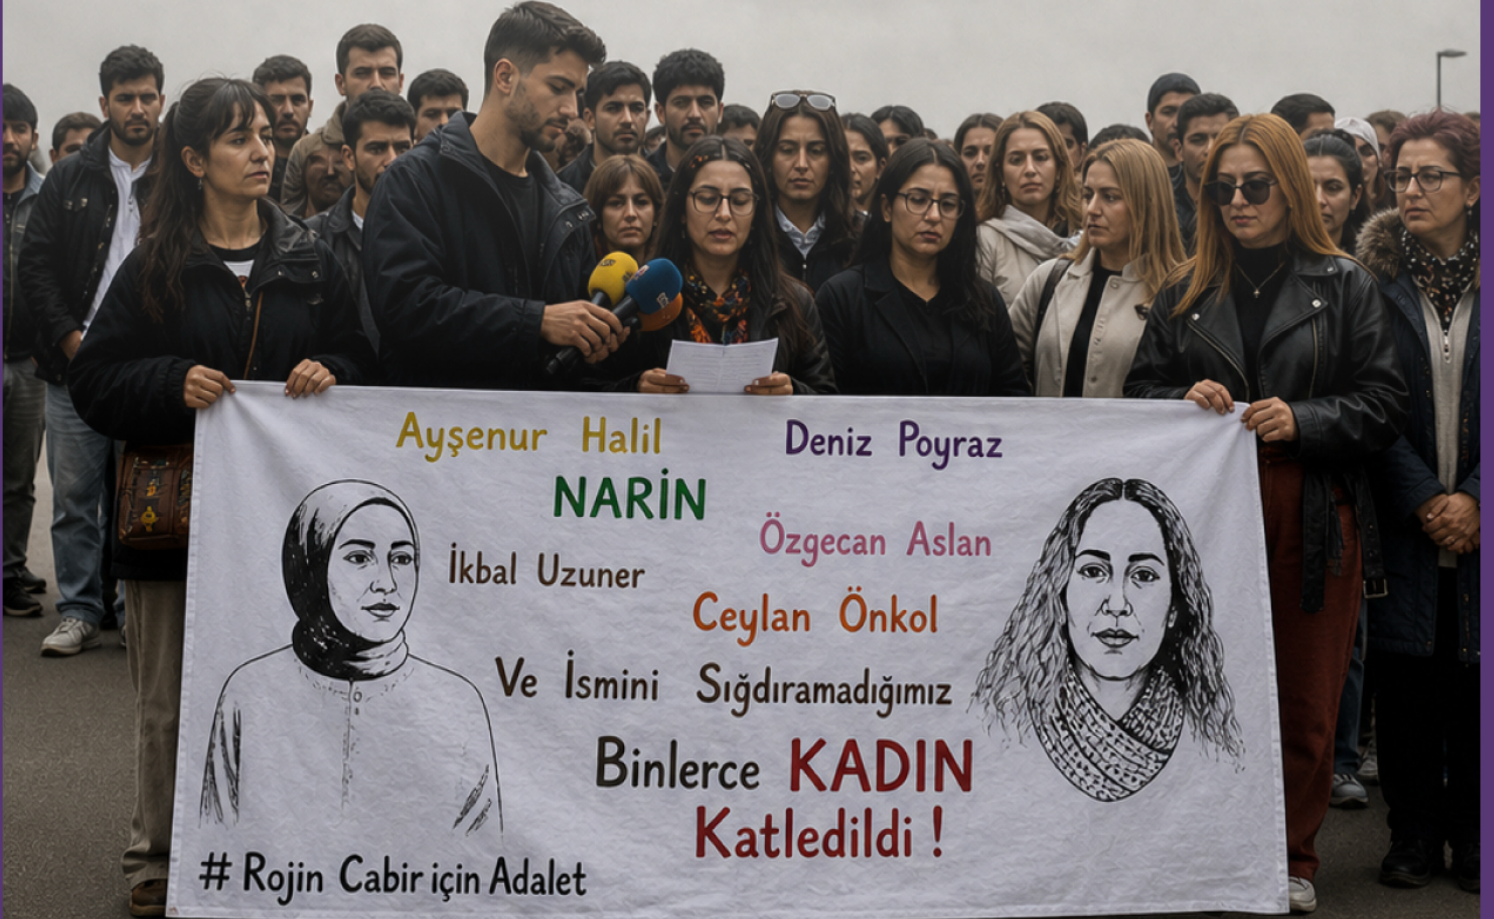 Ayşenur Halil
Deniz Poyraz
NARİN
Özgecan Aslan
İkbal Uzuner
Ceylan Önkol
Ve İsmini Sığdıramadığımız
Binlerce KADIN
Katledildi !
# Rojin Cabir için Adalet